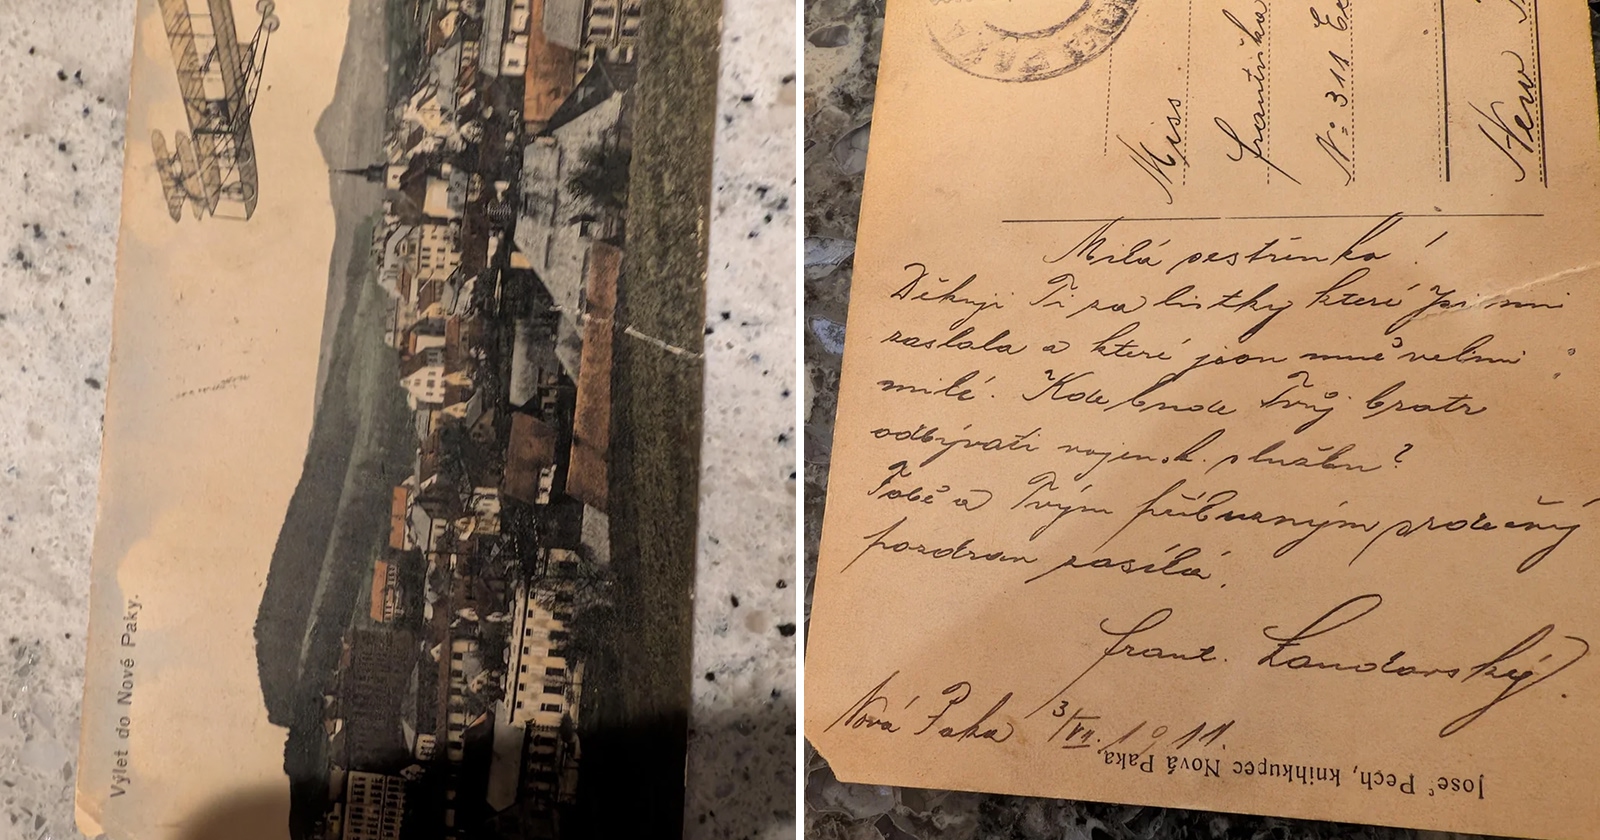 Výlet do Nové Paky.
PAKA
Miss
Františka
No 311 Ea
New
Milá sestřinko!
Děkuji Ti za lístky které jsi mi
zaslala a které jsou mně velmi
milé. Kde bude Tvůj bratr
odbývati vojensk. službu?
Tobě a Tvým příbuzným srdečný
pozdrav zasílá.
Frant. Landovský.
Nová Paka 3/VII. 1911.
Josef Pech, knihkupec Nová Paka.